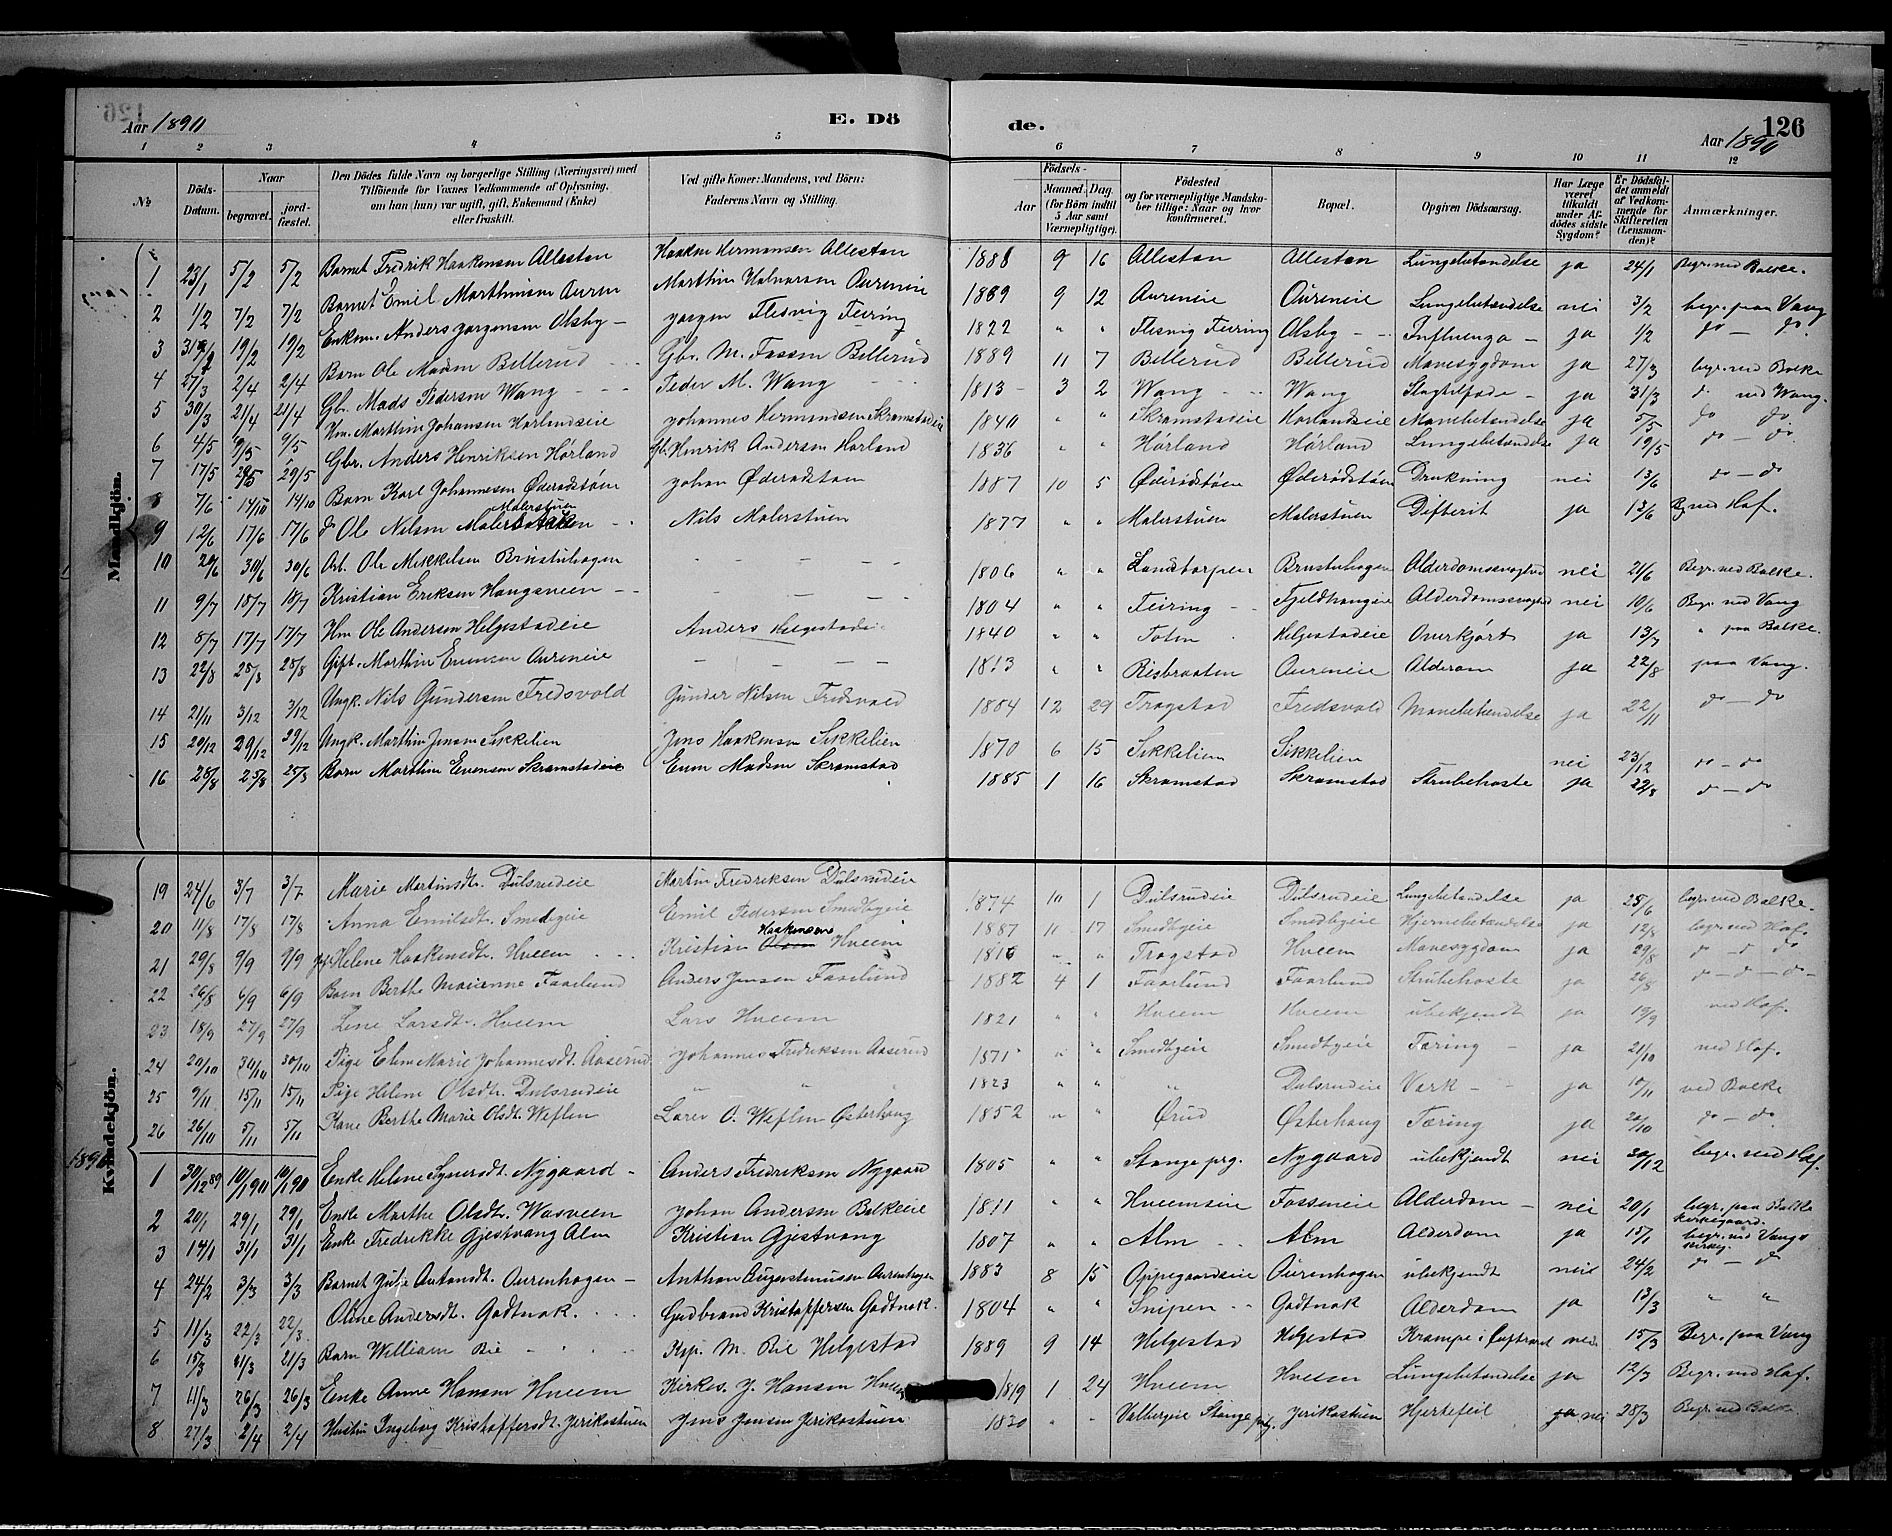 126
Aar 1890
E. Dö
de.
Aar 1890
126
1 2 3 4 5 6 7 8 9 10 11 12
No
Döds-Datum.
Naar
begravet.
jordfæstet.
Den Dödes fulde Navn og borgerlige Stilling (Næringsvei) med Tilföiende for Voxnes Vedkommende af Oplysning, om han (hun) var ugift, gift, Enkemand (Enke) eller fraskilt.
Ved gifte Koner: Mandens, ved Börn: Faderens Navn og Stilling.
Födsels-
Aar
Maaned. Dag.
(for Börn indtil 5 Aar samt Værnepligtige).
Födested og for værnepligtige Mandskaber tillige: Naar og hvor konfirmeret.
Bopæl.
Opgiven Dödsaarsag.
Har Læge været tilkaldt under Afdödes sidste Sygdom?
Er Dödsfaldet anmeldt af Vedkommende for Skifteretten (Lensmanden)?
Anmærkninger.
Mandkjön.
1 23/1 5/2 5/2 Barnet Fredrik Haakensen Allestan Haaken Hermansen Allestan 1888 9 16 Allestan Allestan Lungebetændelse ja 24/1 Begr. ved Balke.
2 1/2 7/2 7/2 Barnet Emil Marthinsen Auren Marthin Halvorsen Aureneie 1889 9 12 Aureneie Aureneie Lungebetændelse nei 3/2 begr. paa Vang
3 19/2 19/2 Enkem. Anders Jørgensen Olsby Jørgen Flesvig Feiring 1822 " " Flesvig Feiring Olsby Influenza ja 1/2 do - do.
4 27/3 2/4 2/4 Barn Ole Madsen Billerud Gbr. M. Fossen Billerud 1889 11 7 Billerud Billerud Mavesygdom ja 27/3 begr. ved Balke
5 30/3 21/4 21/4 Gbr. Mads Pedersen Wang Peder M. Wang 1813 3 2 Wang Wang ja 31/3 d ved Wang.
6 4/5 9/5 9/5 Hm. Marthin Johansen Johannes Hermandsen Skramstadeie 1840 " Skramstadeie ja 5/5 do do
7 17/5 29/5 29/5 Gbr. Anders Henriksen Hørland Gbr. Henrik Andersen Hørland 1836 " Hørland Hørland Lungebetændelse ja 19/5 do - do
8 7/6 14/10 14/10 Barn Karl Johannesen Øderødstøen Johan Øderødstøen 1887 10 5 Øderødstøen Øderødstøen Drukning nei 13/6 do - do
9 12/6 17/6 17/6 d Ole Nilsen Malerstuen Nils Malerstuen 1877 " " Malerstuen Malerstuen Difterit ja 13/6 Bg. ved Hof.
10 20/6 30/6 30/6 Arb. Ole Mikkelsen Brustuhagen - - - - 1806 " " Landtorpen Brustuhagen nei 21/6 Begr. ved Balke.
11 9/7 18/7 18/7 Kristian Eriksen Haugsveen - - - - 1804 " " Feiring Fjeldhaugeie nei 10/6 Begr. ved Vang
12 8/7 17/7 17/7 Hm Ole Andersen Helgestadeie Anders Helgestadeie 1840 " " Toten Helgestadeie Overkjørt ja 13/7 " paa Balke.
13 22/8 28/8 28/8 Gift. Marthin Evensen Aureneie - - - - 1813 " " Risbraaten Aureneie Alderdom ja 22/8 paa Vang.
14 21/11 3/12 3/12 Ungk. Nils Gundersen Fredsvold Gunder Nilsen Fredsvold 1884 12 29 Trogstad Fredsvold Mavebetændelse ja 22/11 do - do
15 20/12 29/12 29/12 Ungk. Marthin Jensen Sikkelien Jens Haakensen Sikkelien 1870 6 15 Sikkelien Sikkelien nei 23/12 do - do
16 28/8 25/8 25/8 Barn Marthin Evensen Skramstadeie Even Madsen Skramstad 1885 1 16 Skramstad Skramstad Strubehoste ja 22/8 do - do
Kvindekjön.
19 24/6 3/7 3/7 Marie Martinsdt. Dulsrudeie Martin Fredriksen Dulsrudeie 1874 10 1 Dulsrudeie Dulsrudeie Lungebetændelse ja 25/6 begr. ved Balke.
20 11/8 17/8 17/8 Anna Emilsdt. Smedbyeie Emil Pedersen Smedbyeie 1887 11 17 Smedbyeie Smedbyeie Hjernebetændelse ja 12/8 begr. ved Hof.
21 29/8 9/9 9/9 Helene Haakensdt. Hveem Kristian Haakensens Hveem 1816 " " Trogstad Hveem Mavesygdom ja 29/8 do - do
22 26/8 6/9 6/9 Barn Berthe Marienne Faarlund Anders Jensen Faarlund 1882 4 1 Faarlund Faarlund Strubehoste ja 26/8 do - do
23 18/9 27/9 27/9 Lene Larsdt. Hveem Lars Hveem 1821 " " Hveem Hveem ubekjendt ja 19/9 ved Hof.
24 20/10 30/10 30/10 Pige Elen Marie Johannesdt. Aaserud Johannes Fredriksen Aaserud 1871 " " Smedbyeie Smedbyeie Tæring ja 21/10 ved Hof.
25 9/11 15/11 15/11 Pige Helene Olsdt. Dulsrudeie " " " 1823 " " " Dulsrudeie Værk ja 10/11 ved Balke
26 26/10 5/11 5/11 Kone Berthe Marie Olsdt. Weflen Larer O. Weflen Østerhaug 1852 " " Ørud Østerhaug Tæring ja 20/10 do - do
1890
1 30/12 89 10/1 90 10/1 90 Enke Helene Nygaard Anders Fredriksen Nygaard 1805 " " Stange prg. Nygaard ubekjendt nei 30/12 begr. ved Hof.
2 20/1 29/1 29/1 Enke Marthe Olsdt. Wasveen Johan Andersen Balkeeie 1811 " " Hveemseie Fosseneie Alderdom nei 20/1 begr. paa Balke kirkegaard.
3 14/1 31/1 31/1 Enke Fredrikke Gjestvang Alm Kristian Gjestvang 1807 " " Alm Alm Alderdom ja 15/1 begr. ved Vangs kirkeg.
4 24/2 3/3 3/3 Barnet Julie Antonsdt. Aurenhagen Anthon Augustinusen Aurenhagen 1883 8 15 Oppegaardseie Aurenhagen ubekjendt nei 24/2 do - d
5 11/3 22/3 22/3 Oline Andersdt. Godtnok. Gudbrand Kristoffersen Godtnok. 1804 " " Snipen Godtnok Alderdom ja 13/3 " "
6 15/3 21/3 21/3 Barn William Bie Ksp. M. Bie Helgestad 1889 9 14 Helgestad Helgestad nei 15/3 Begr. paa Vang
7 11/3 26/3 26/3 Enke Anne Hansen Hveem Kirkes. J. Hansen Hveem 1819 1 24 Hveem Hveem Lungebetændelse ja 12/3 Begr. ved Hof.
8 27/3 2/4 2/4 Hustru Ingeborg Kristoffersdt. Jerikostuen Jens Jensen Jerikostuen 1820 " " Valbergeie Stange prg. Jerikostuen Hjertefeil ja nei 28/3 Begr. ved Balke.